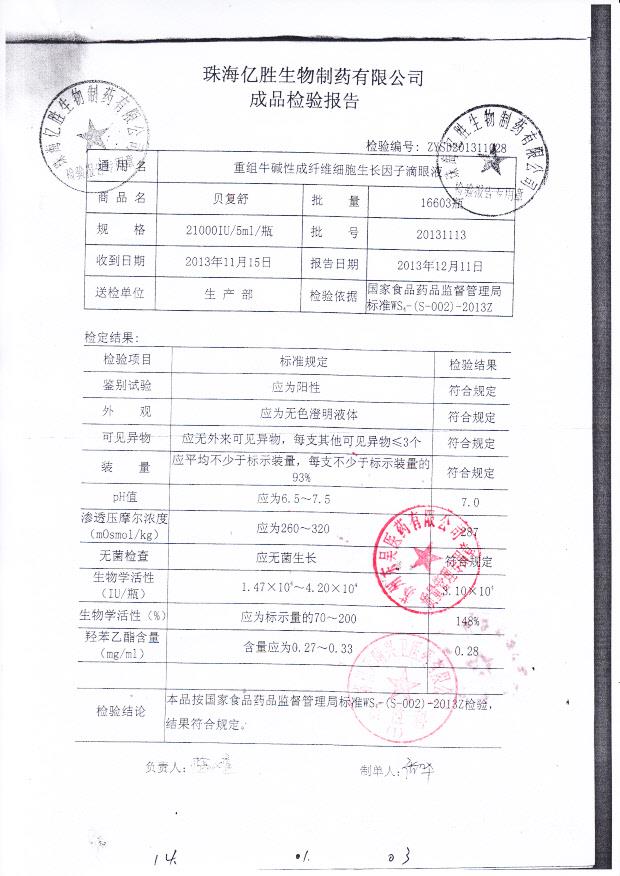 珠海亿胜生物制药有限公司
成品检验报告
珠海亿胜生物制药有限公司
检验报告专用章
珠海亿胜生物制药有限公司
检验报告专用章
检验编号: ZYSB201311028
通用名 重组牛碱性成纤维细胞生长因子滴眼液
商品名 贝复舒 批量 16603瓶
规格 21000IU/5ml/瓶 批号 20131113
收到日期 2013年11月15日 报告日期 2013年12月11日
送检单位 生产部 检验依据 国家食品药品监督管理局
标准WS₄-(S-002)-2013Z
检定结果:
检验项目 标准规定 检验结果
鉴别试验 应为阳性 符合规定
外观 应为无色澄明液体 符合规定
可见异物 应无外来可见异物,每支其他可见异物≤3个 符合规定
装量 应平均不少于标示装量,每支不少于标示装量的
93% 符合规定
pH值 应为6.5~7.5 7.0
渗透压摩尔浓度
(mOsmol/kg) 应为260~320 287
无菌检查 应无菌生长 符合规定
生物学活性
(IU/瓶) 1.47×10⁴~4.20×10⁴ 3.10×10⁴
生物学活性(%) 应为标示量的70~200 148%
羟苯乙酯含量
(mg/ml) 含量应为0.27~0.33 0.28
检验结论 本品按国家食品药品监督管理局标准WS₄-(S-002)-2013Z检验,
结果符合规定。
苏州东吴医药有限公司
负责人: 制单人:
14. 01. 03